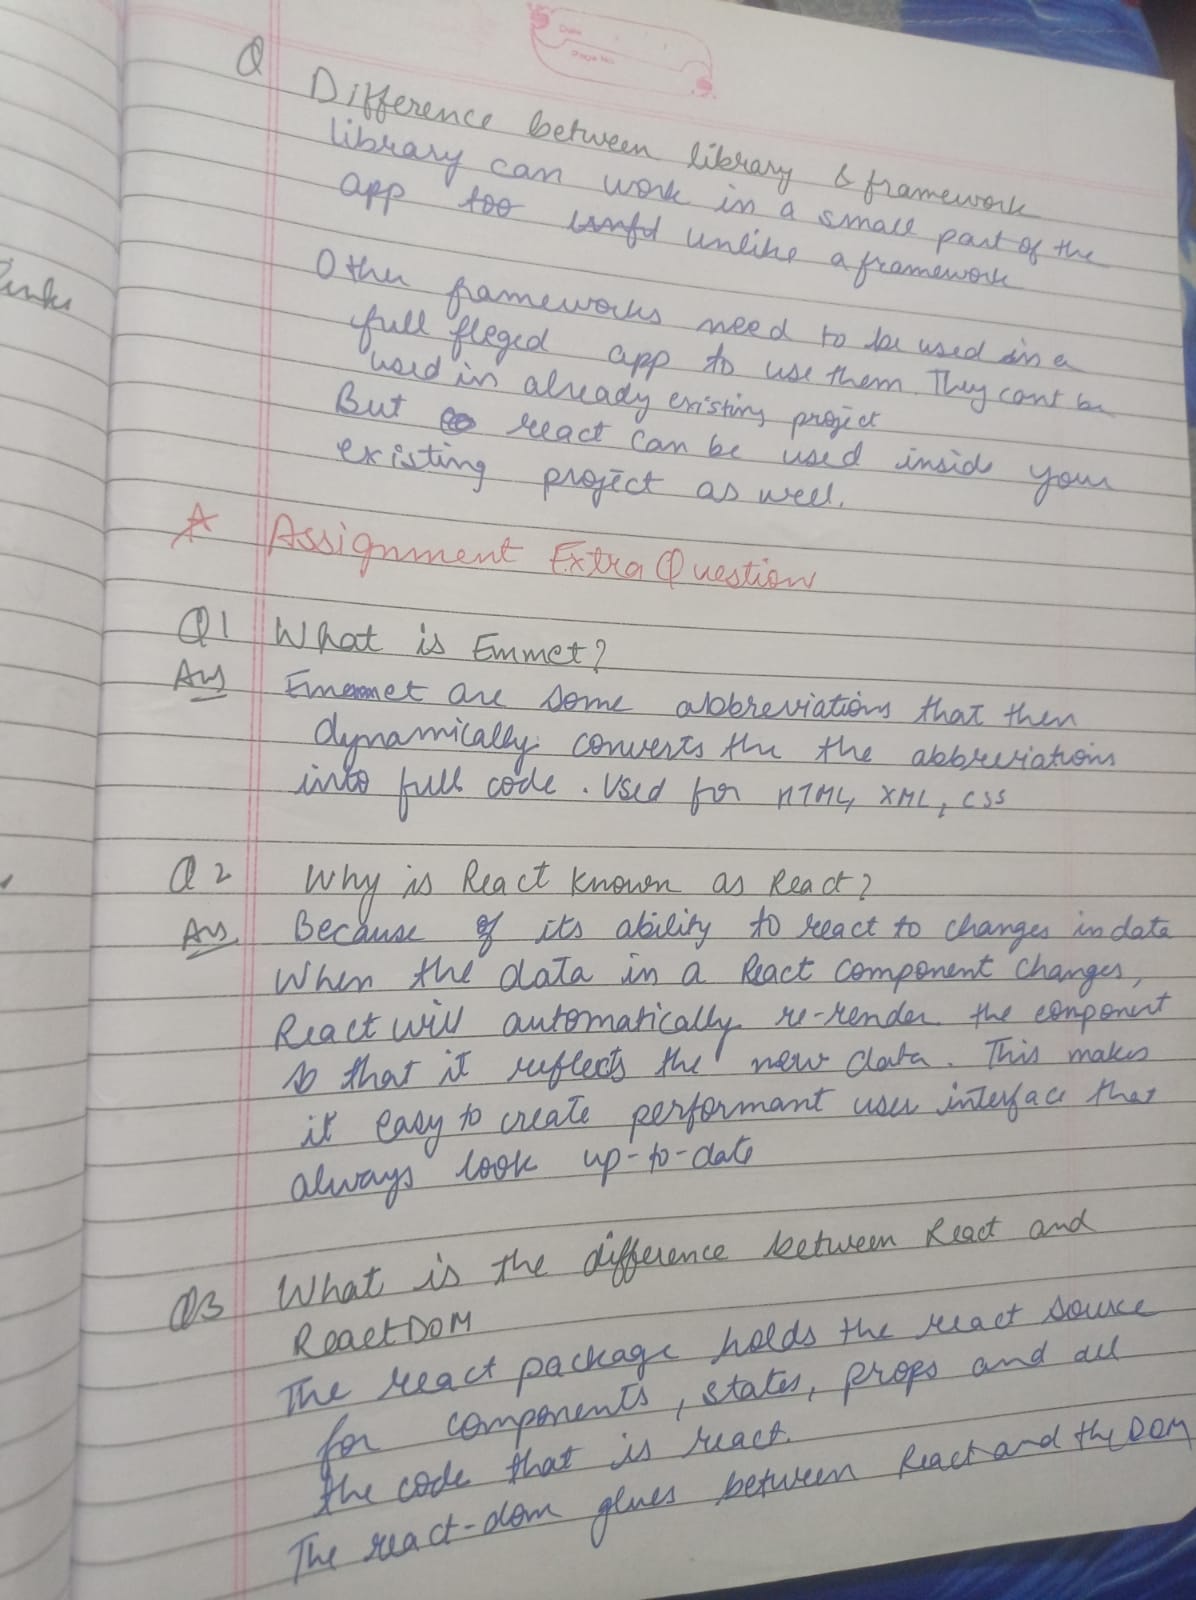 Date
Page No.
Q Difference between library & framework
library can work in a small part of the
app too unlike a framework
Other frameworks need to be used in a
full fleged app to use them. They cant be
used in already existing project
But react can be used inside your
existing project as well.
Assignment Extra Question
Q1 What is Emmet?
Ans Emmet are some abbreviations that then
dynamically converts the the abbreviations
into full code. Used for HTML, XML, CSS
Q2 Why is React known as React?
Ans Because of its ability to react to changes in data
When the data in a React component changes,
React will automatically re-render the component
so that it reflects the new data. This makes
it easy to create performant user interface that
always look up-to-date
Q3 What is the difference between React and
ReactDOM
The react package holds the react source
for components, states, props and all
the code that is react.
The react-dom glues between React and the DOM